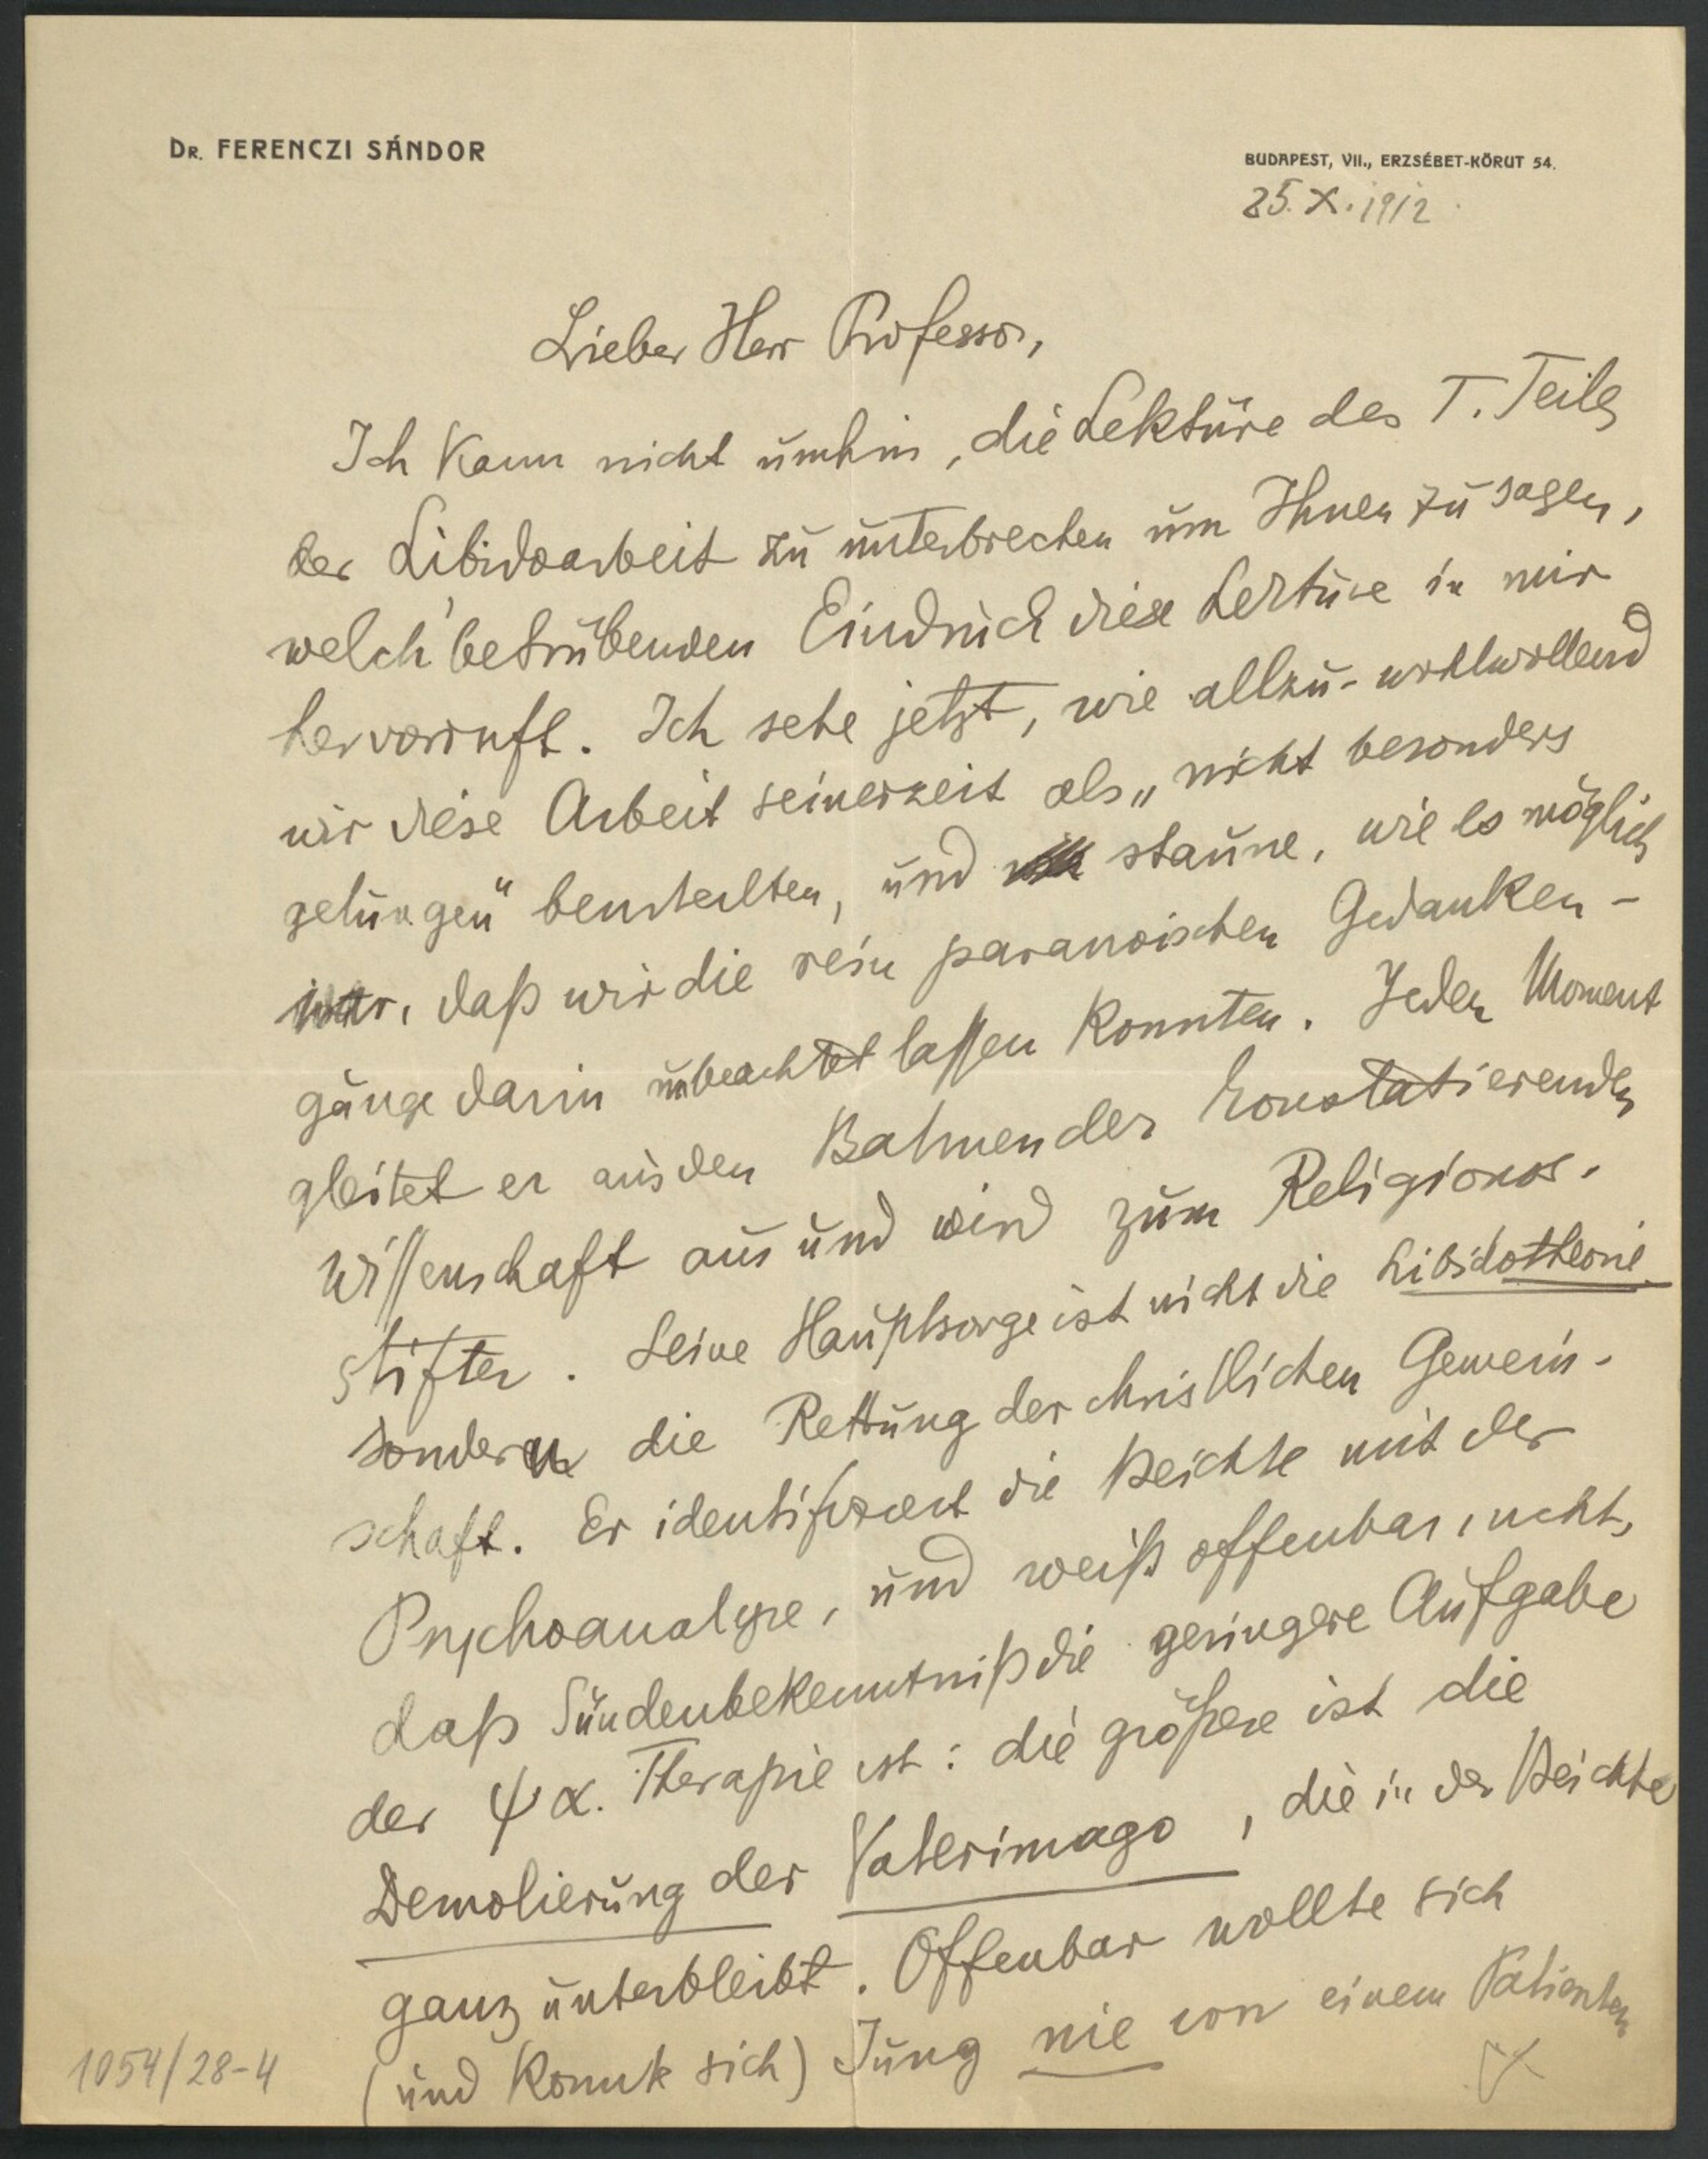 Dr. FERENCZI SÁNDOR
BUDAPEST, VII., ERZSÉBET-KÖRUT 54.
25. X. 1912
Lieber Herr Professor,
Ich kann nicht umhin, die Lektüre des I. Teiles
der Libidoarbeit zu unterbrechen um Ihnen zu sagen,
welch' betrübenden Eindruck diese Lektüre in mir
hervorruft. Ich sehe jetzt, wie allzu-wohlwollend
wir diese Arbeit seinerzeit als „nicht besonders
gelungen" beurteilten, und staune, wie es möglich
war, daß wir die rein paranoischen Gedanken-
gänge darin unbeachtet lassen konnten. Jeden Moment
gleitet er aus den Bahnen der konstatierenden
Wissenschaft aus und wird zum Religions-
stifter. Seine Hauptsorge ist nicht die Libidotheorie
sondern die Rettung der christlichen Gemein-
schaft. Er identifiziert die Beichte mit der
Psychoanalyse, und weiß offenbar nicht,
daß Sündenbekenntniß die geringere Aufgabe
der ψα. Therapie ist: die größere ist die
Demolierung der Vaterimago, die in der Beichte
ganz unterbleibt. Offenbar wollte sich
(und konnte sich) Jung nie von einem Patienten
1054/28-4